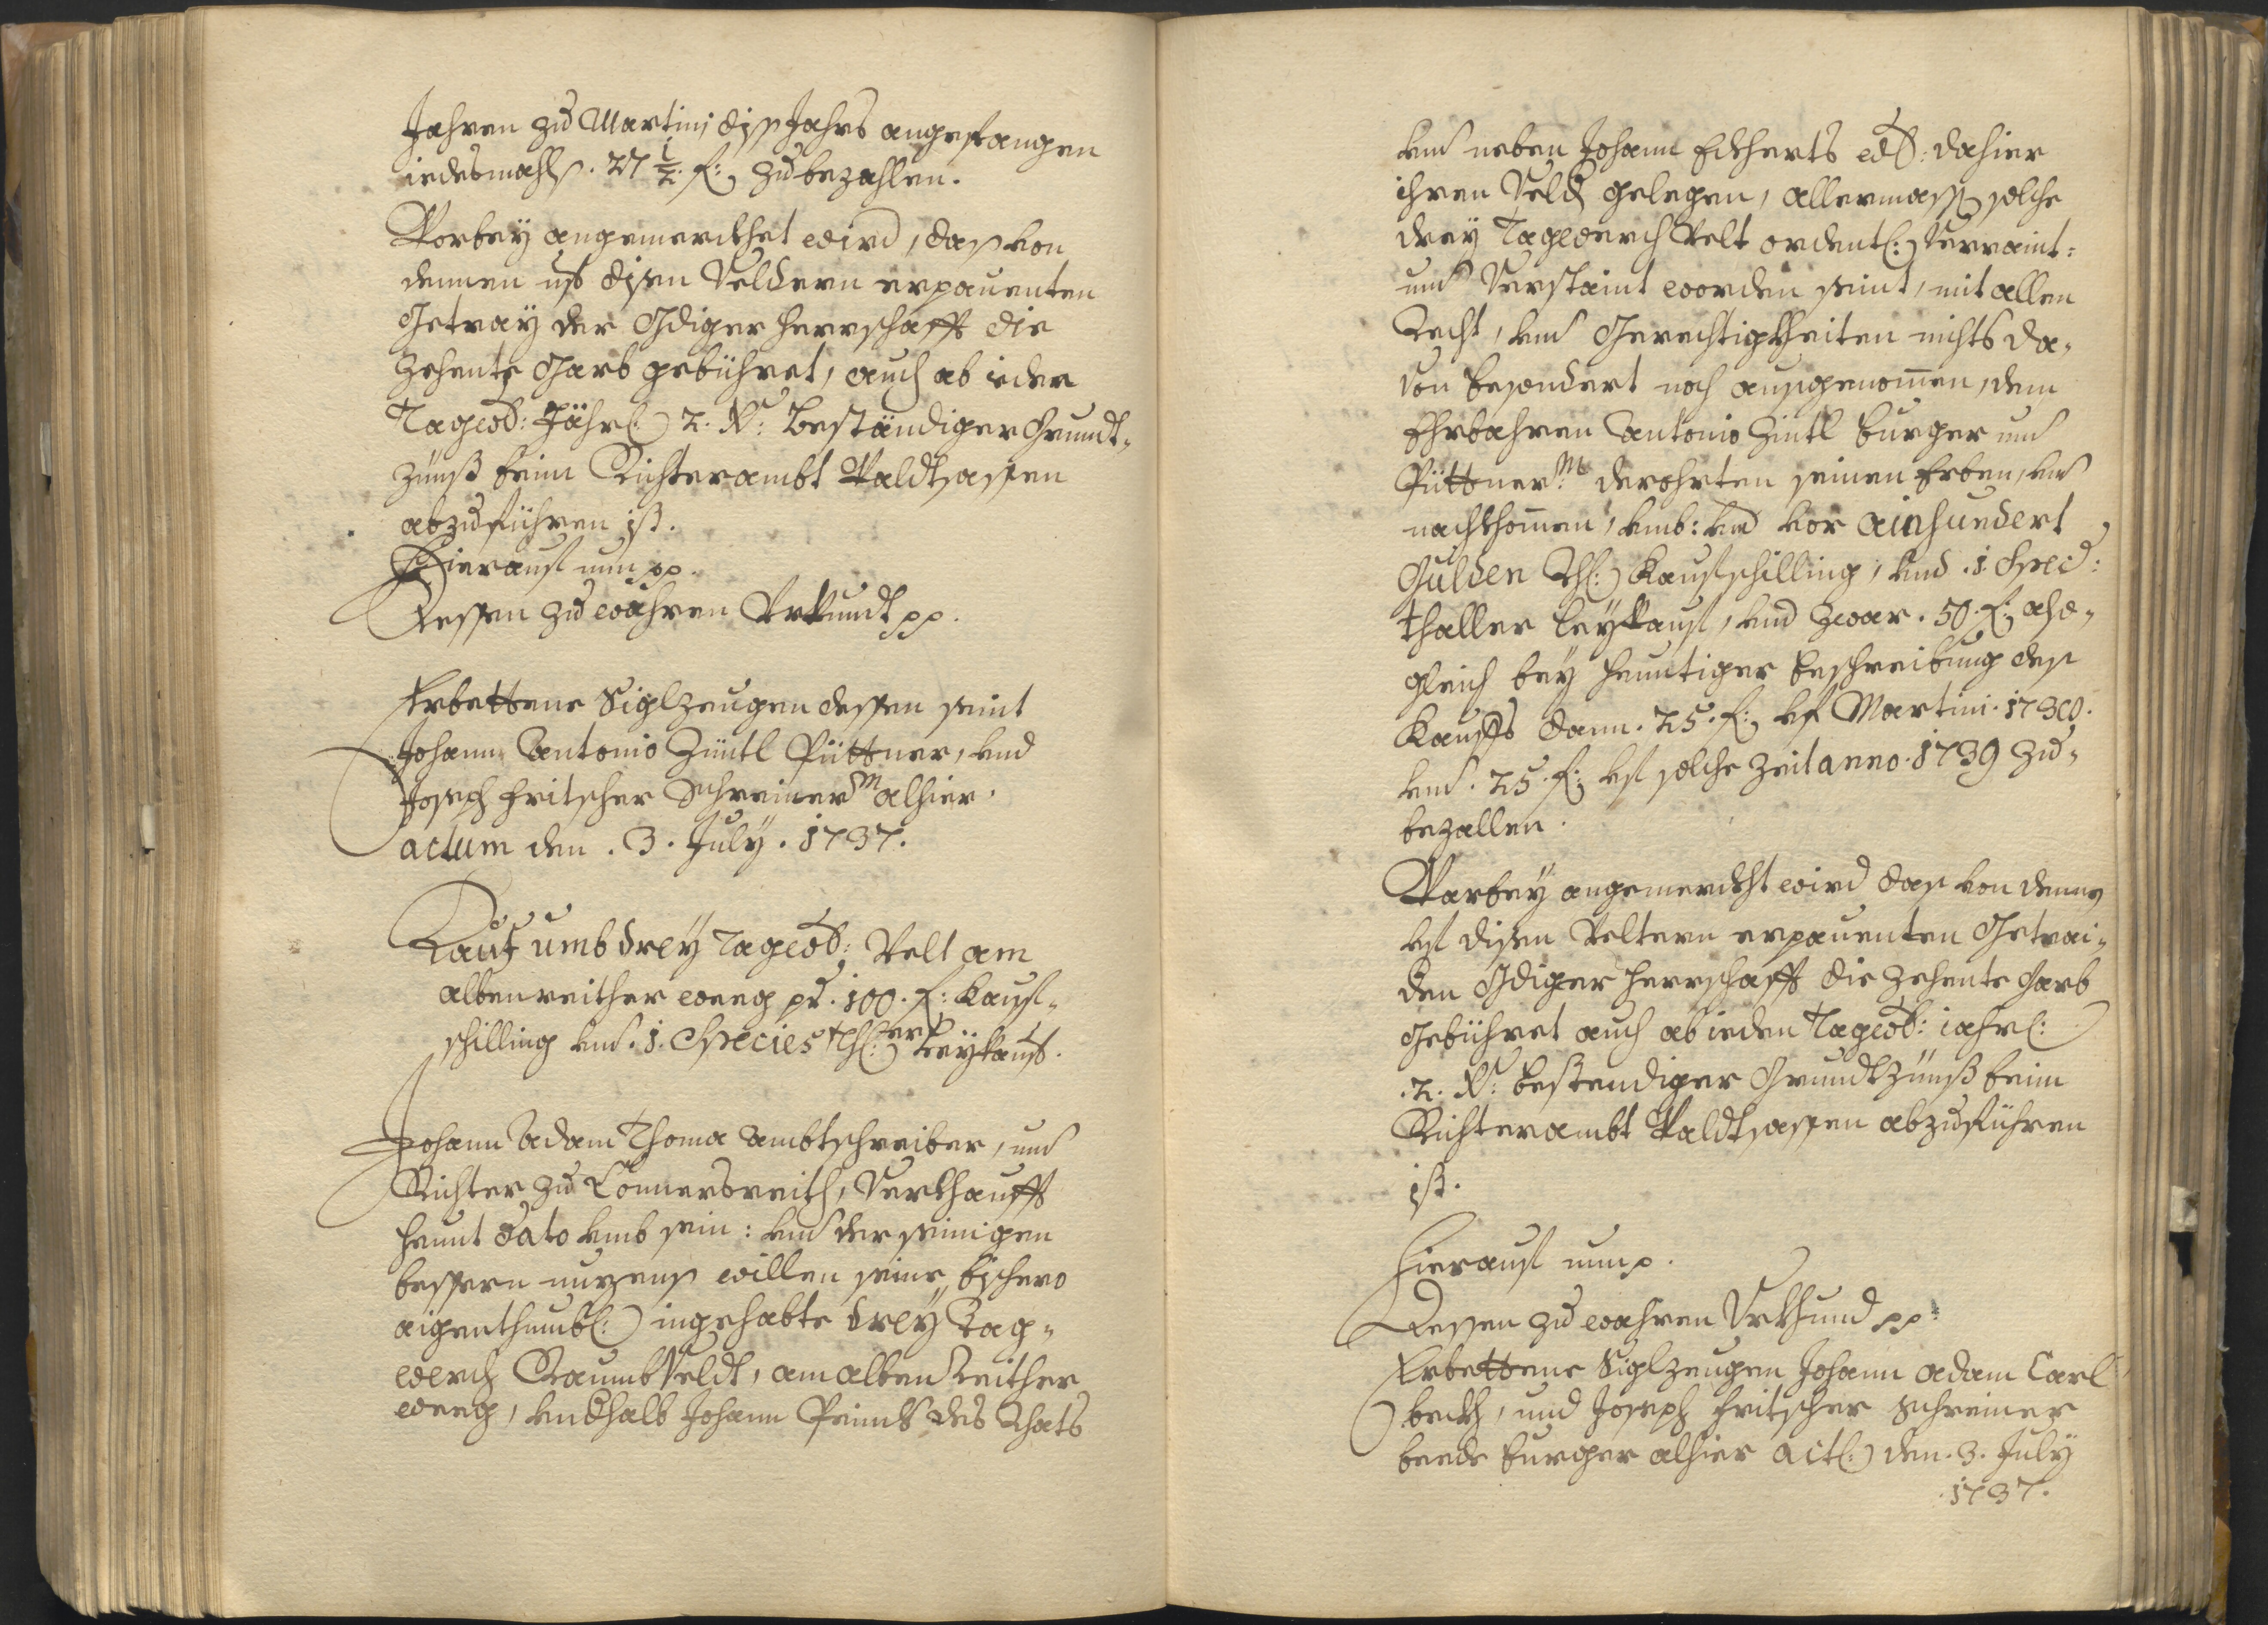 Jahren zu Martini diß Jahrs angefangen
iedesmahls. 27 1/2. f: zu bezahlen.
Worbey angemerckhet wird, daß von
dennen uf disen Veldern erpauenten
Getray der Gdiger Herrschafft die
Zehente Garb gebühret, auch ab ieder
Tagw: Jährl: 2. Xr: beständiger Grundt-
zünß beim Richterambt Waldtsassen
abzuführen ist.
Hierauf nun pp.
Dessen zu wahren Vrkundt pp.
Erbettene Siglzeugen dessen seint
Johann Antonio Züntl Püttner, und
Joseph Fritscher Schreiner M alhier.
actum den. 3. July. 1737.
Kauf umb drey Tagw: Velt am
albenreither weeg pr. 100. f: Kauf-
schilling und. 1. Species thl: er Leykauf.
Johann Adam Thoma Ambtschreiber, und
Richter zu Connersreith, Verkhaufft
heunt dato umb sein: und der seinigen
bessern nuzens willen seine bishero
aigenthumbl: ingehabte drey Tag-
werch Raumb Veldt, am alben Reither
weeg, und halb Johann des Rhats
und neben Johann Eckherts dahier
ihren Veld gelegen, allermass solche
drey Tagwerch Velt ordentl: Verraint-
und Verstaint worden seint, mit allen
Recht, und Gerechtigkheiten nichts da-
von besondert noch ausgenommen, dem
Ehrbahren Antonio Züntl burger und
Püttner M: derohrten seinen Erben, und
nachkhommen, umb: und vor ainhundert
Gulden Rh: Kaufschilling, und .1. Specis:
thaller Leykauf, und zwar. 50. f: also-
gleich bey heuntiger beschreibung des
Kauffs dann. 25. f: uf Martini. 1738.
und. 25. f: uf solche Zeit anno. 1739 zu-
bezallen.
Warbey angemerckht wird das von dennen
uf disen Veltern erpauenten Getrai-
den Gdiger Herrschafft die Zehente Garb
gebühret auch ab ieden Tagw: iahrl:
.2. Xr: bestendiger Grundtzünß beim
Richterambt Waldtsassen abzuführen
ist.
Hierauf nun p.
Dessen zu wahren Vrkhund pp:
Erbettene Siglzeugen Johann Adam Carl
beckh, und Joseph Fritscher Schreiner
beede burger alhier act: den. 3. July
.1737.